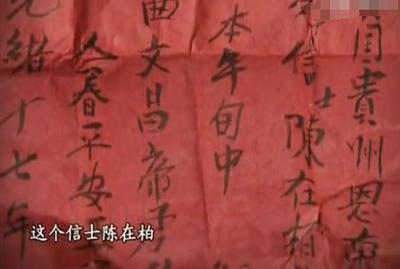 貴州思南
信士陳在栢
本年旬中
曲文昌帝君
春平安
光緒十七年
这个信士陈在柏